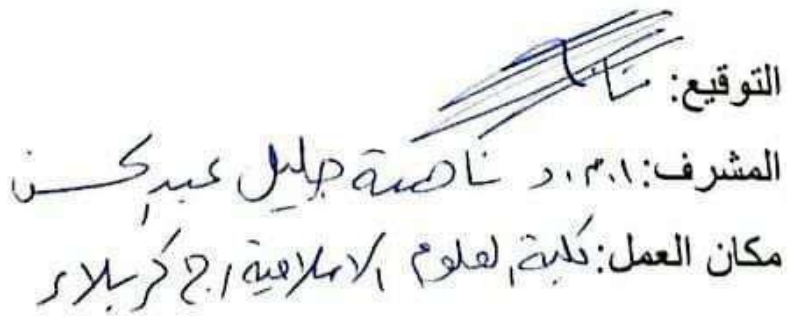 التوقيع:
المشرف: ا.م.د ناهدة جليل عبدالحسن
مكان العمل: كلية العلوم الاسلامية / ج كربلاء